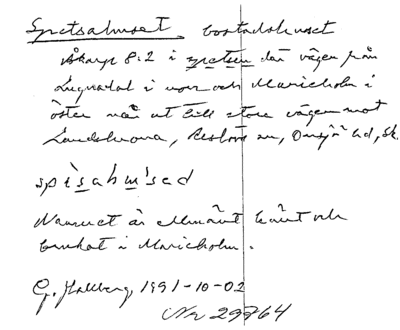 Spetsahuset bostadshuset
Åkarp 8:2 i spetsen där vägen från
Lugnadal i norr och Marieholm i
öster når ut till stora vägen mot
Landskrona, Reslövs sn, Onsjö hd, Sk.
spìsahm'sed
Namnet är allmänt känt och
brukat i Marieholm.
G. Hallberg 1991-10-02
Nr 29764